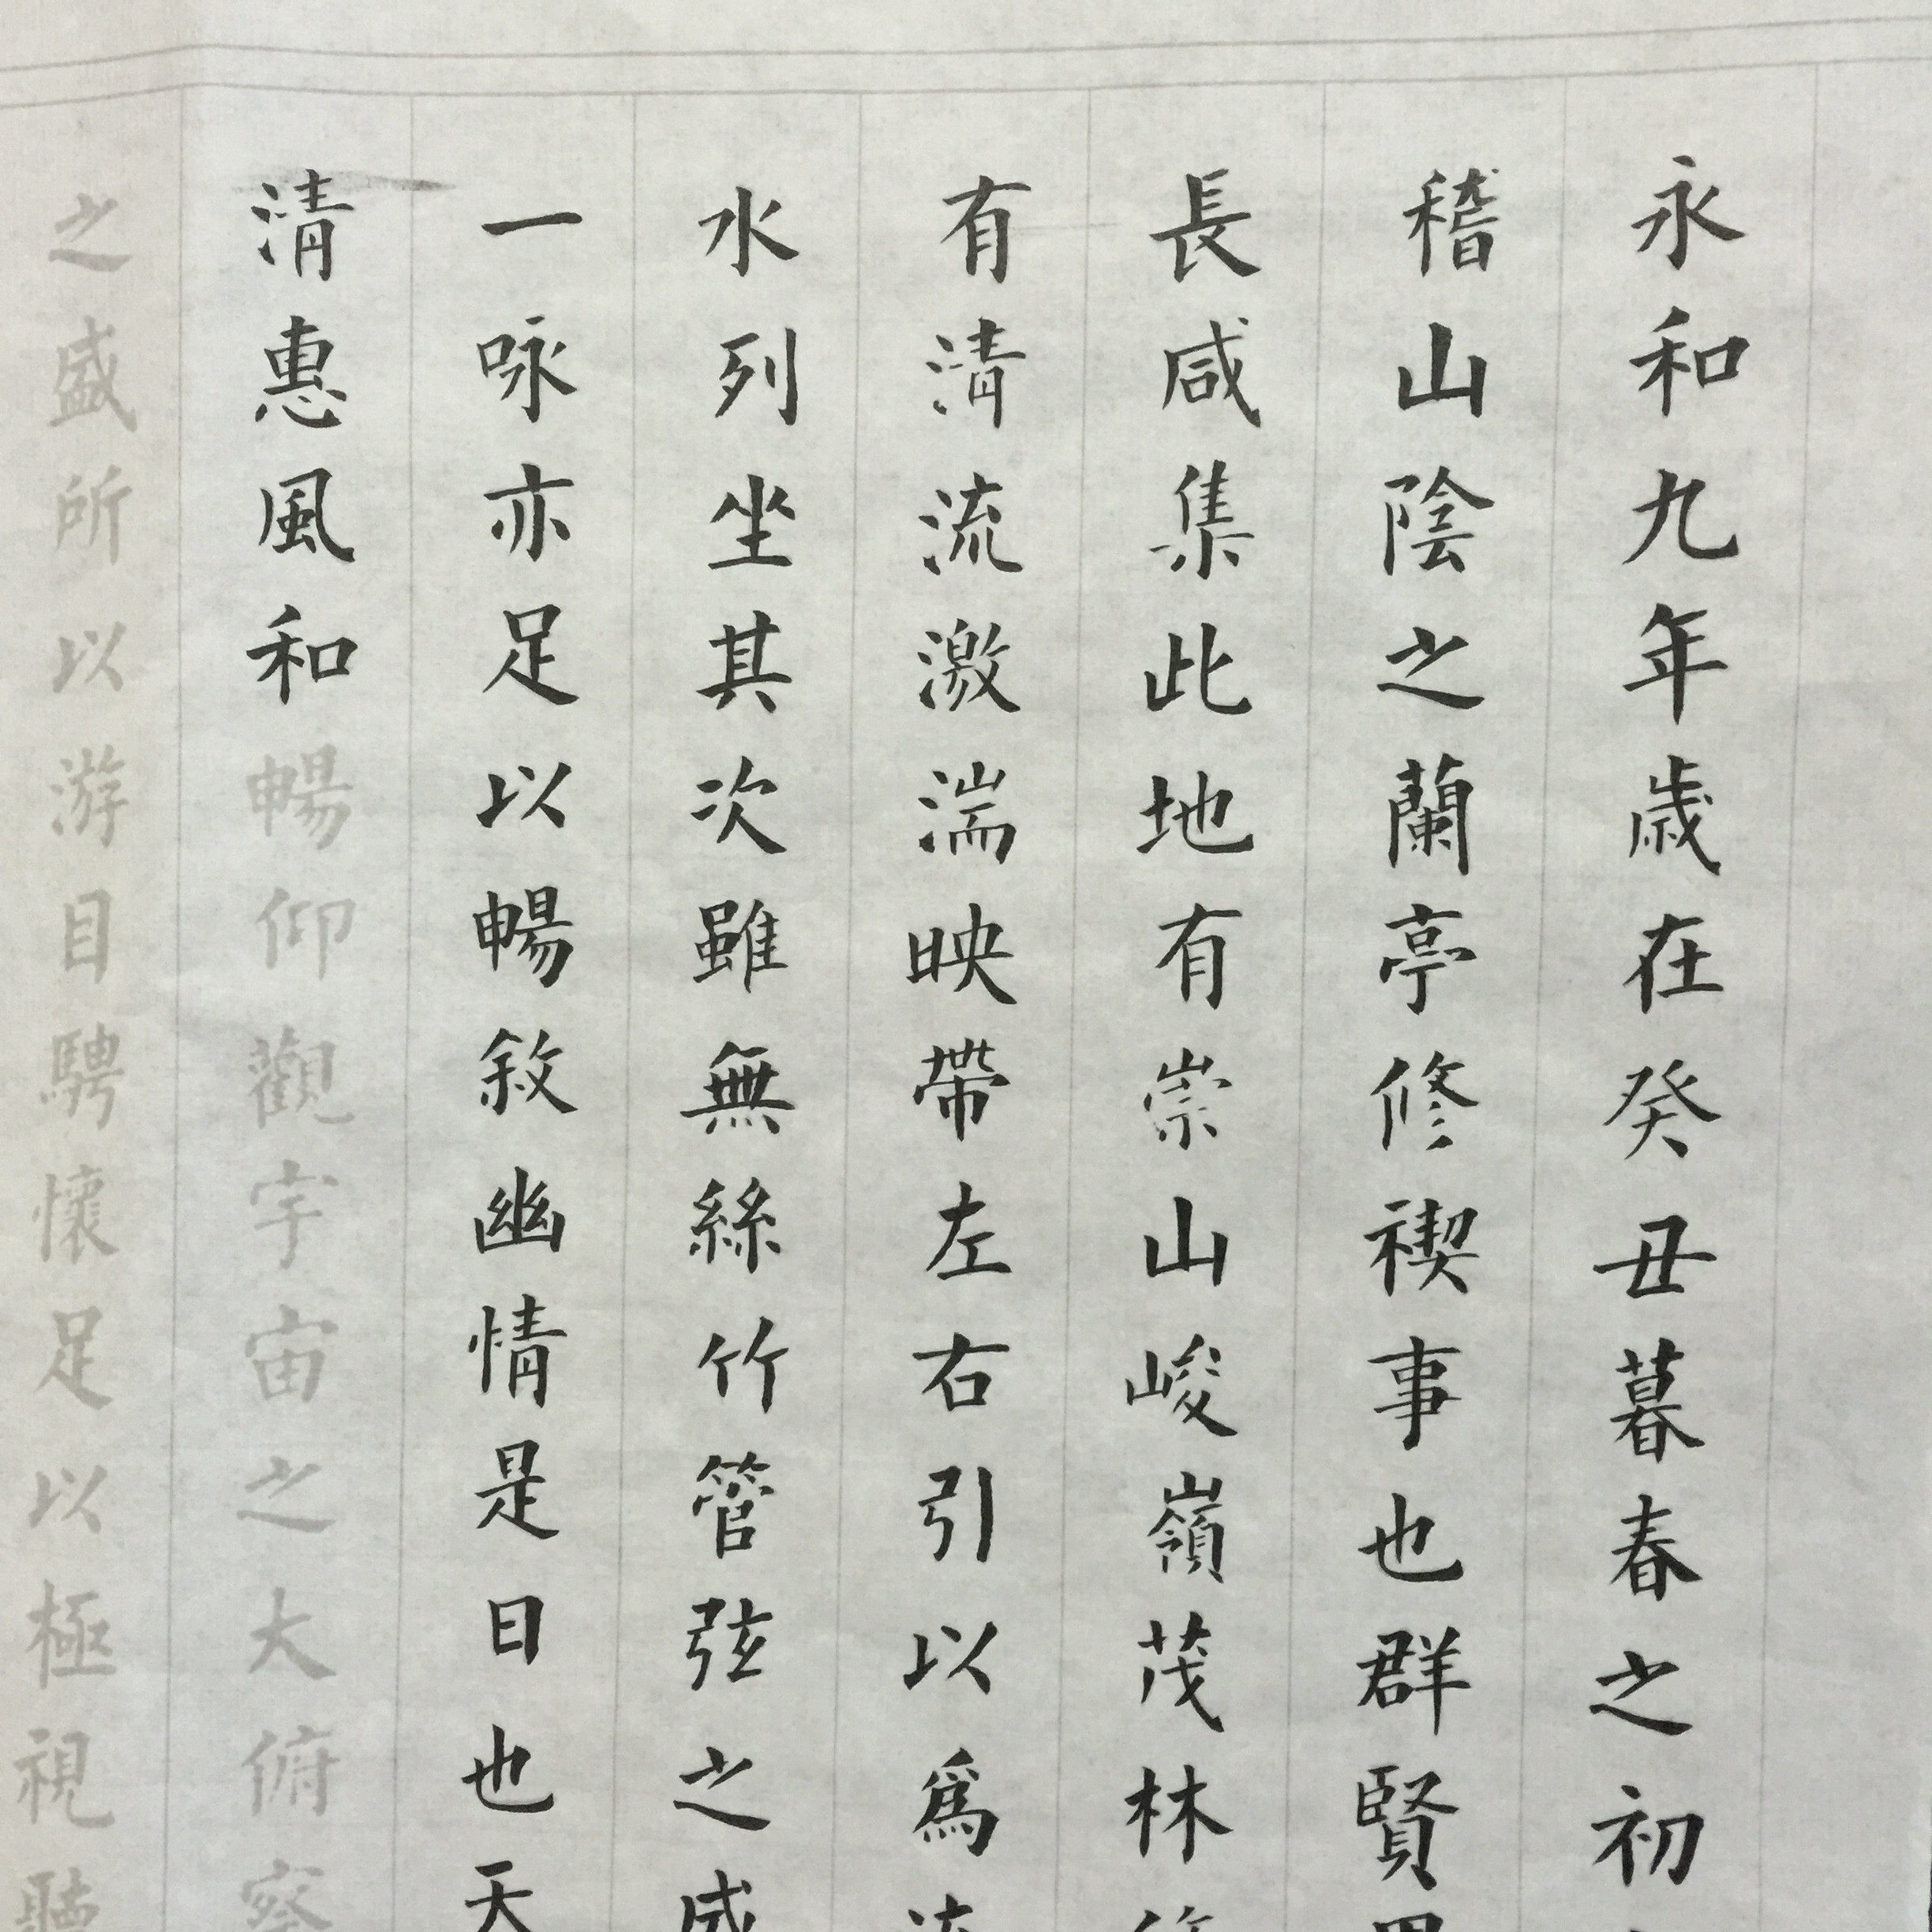 永和九年歲在癸丑暮春之初
稽山陰之蘭亭修禊事也群賢畢
長咸集此地有崇山峻嶺茂林修
有清流激湍映帶左右引以爲流
水列坐其次雖無絲竹管弦之盛
一咏亦足以暢敘幽情是日也天
清惠風和暢仰觀宇宙之大俯察
之盛所以游目騁懷足以極視聽